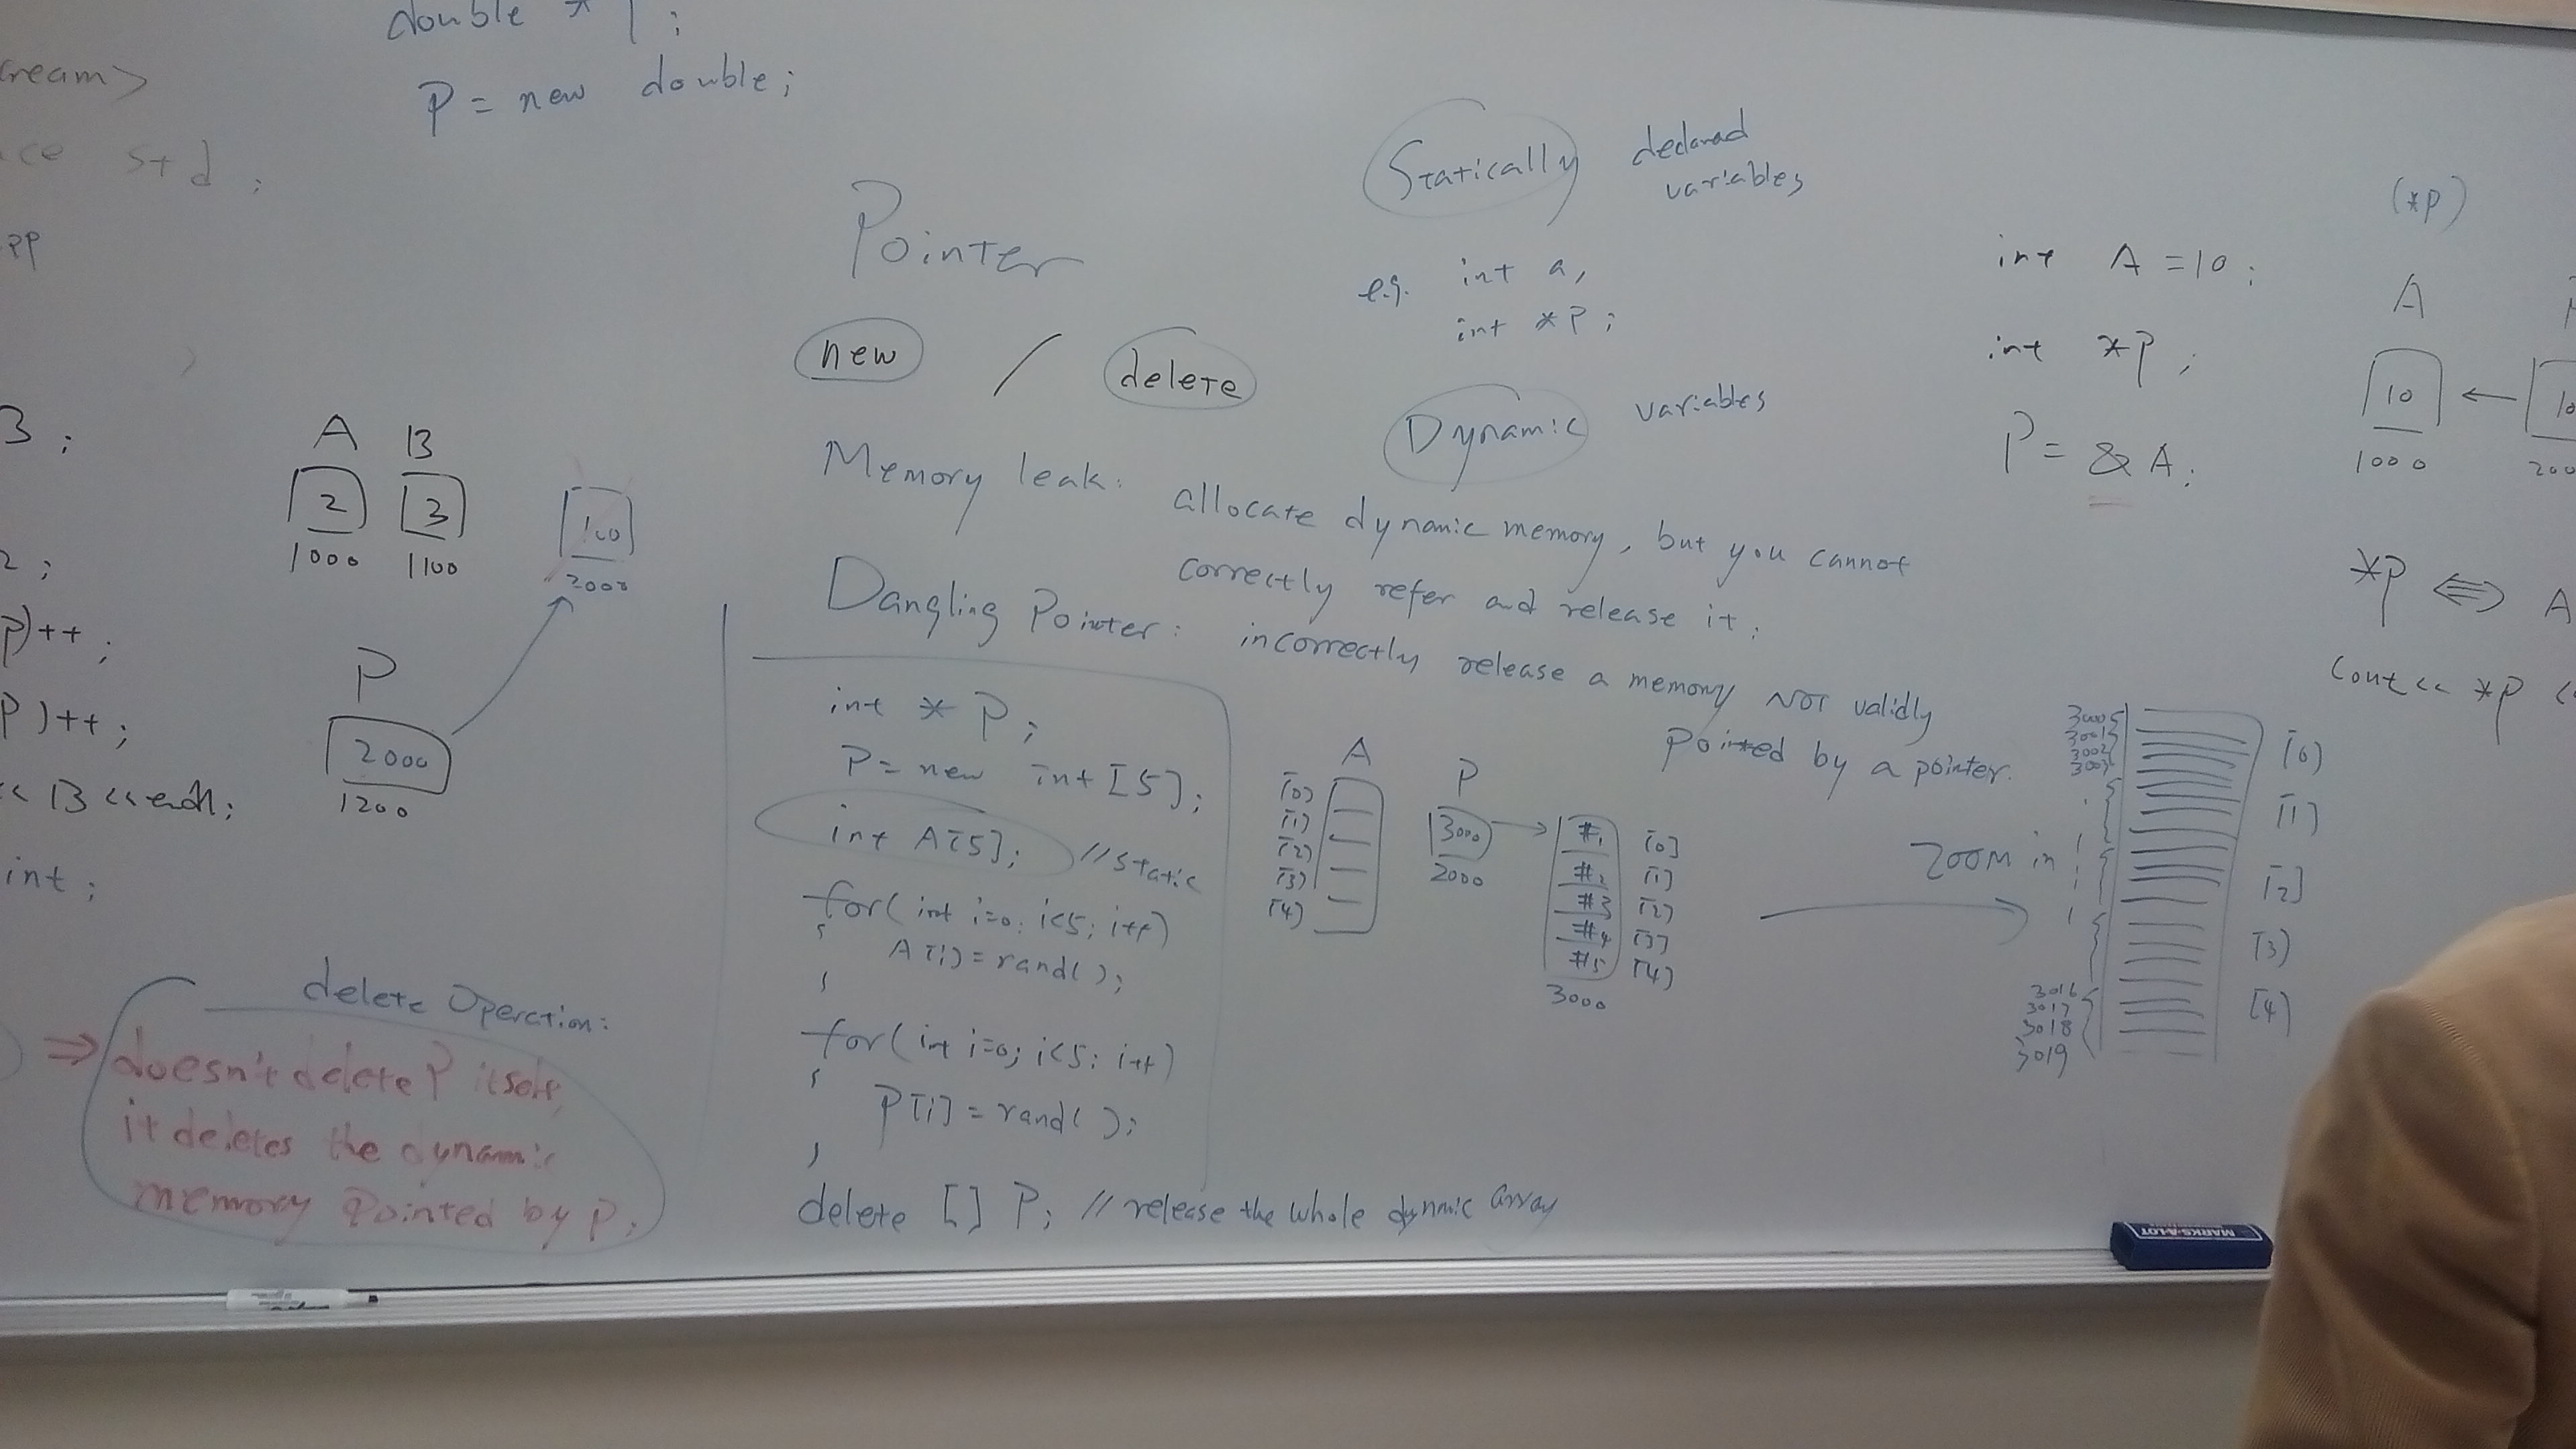 double * P ;
P = new double;
ream>
ce std ;
pp
3 ;
2 ;
P)++ ;
P)++ ;
<< B << endl;
int ;
A B
2 3
1000 1100
100
2000
P
2000
1200
delete Operation:
⇒ doesn't delete P itself,
it deletes the dynamic
memory Pointed by P.
Pointer
new / delete
Statically declared
variables
e.g. int a,
int *P ;
Dynamic variables
Memory leak: allocate dynamic memory, but you cannot
correctly refer and release it.
Dangling Pointer: incorrectly release a memory NOT validly
pointed by a pointer.
int * P ;
P = new int [5];
int A[5]; //static
for( int i=0; i<5; i++)
{
A[i] = rand( );
}
for( int i=0; i<5; i++)
{
P[i] = rand( );
}
delete [] P; // release the whole dynmic array
A
[0]
[1]
[2]
[3]
[4]
P
3000
2000
#1 [0]
#2 [1]
#3 [2]
#4 [3]
#5 [4]
3000
ZOOM in
3000
3001
3002
3003
3016
3017
3018
3019
[0]
[1]
[2]
[3]
[4]
(*P)
int A = 10 ;
int *P ;
P = & A ;
A
10 ← 10
1000 200
*P ⇔ A
cout << *P <
MARKS-A-LOT